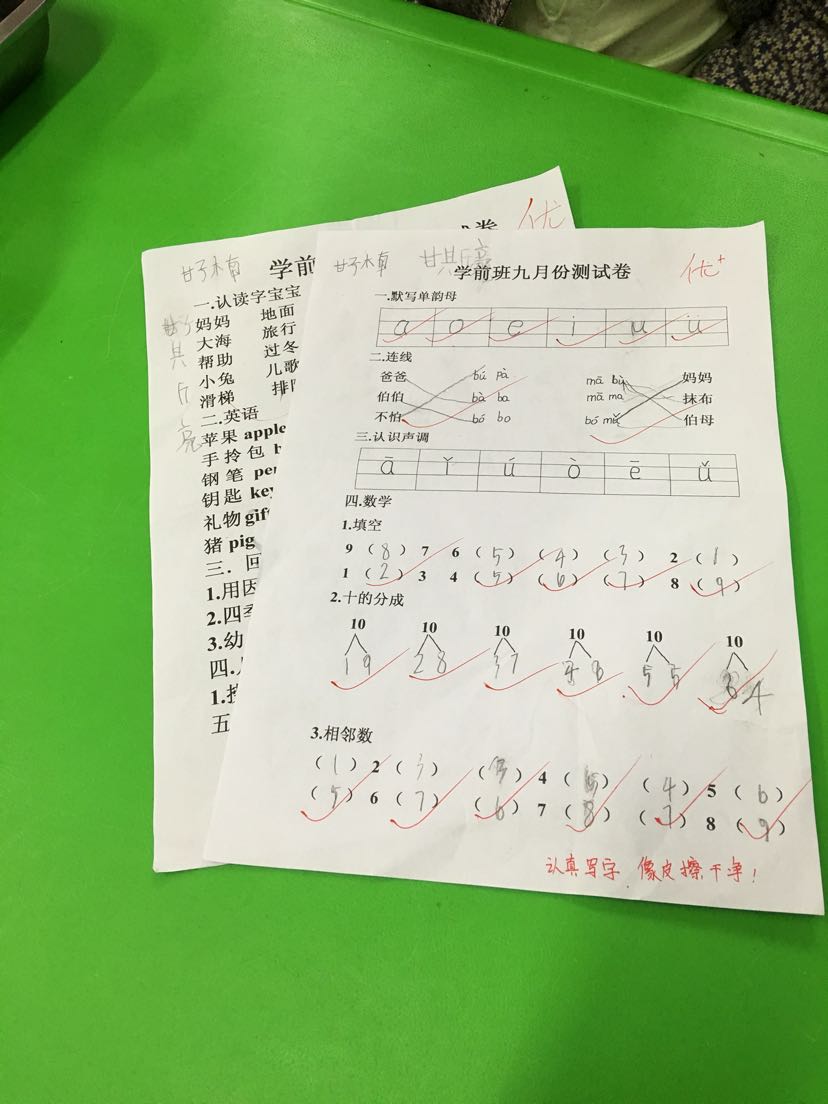 优
学前
一.认读字宝宝
妈妈 地面
大海 旅行
帮助 过冬
小兔 儿歌
滑梯 排
二.英语
苹果 apple
手拎包
钢笔 pe
钥匙 key
礼物 gif
猪 pig
三.回
1.用因
2.四季
3.幼
四.
1.
五
学前班九月份测试卷 优+
一.默写单韵母
a o e i u ü
二.连线
爸爸 bú pà mā bù 妈妈
伯伯 bà ba mā ma 抹布
不怕 bó bo bó mǔ 伯母
三.认识声调
ā ǐ ú ò ē ǔ
四.数学
1.填空
9 (8) 7 6 (5) (4) (3) 2 (1)
1 (2) 3 4 (5) (6) (7) 8 (9)
2.十的分成
10 10 10 10 10 10
1 9 2 8 3 7 4 6 5 5 6 4
3.相邻数
(1) 2 (3) (3) 4 (5) (4) 5 (6)
(5) 6 (7) (6) 7 (8) (7) 8 (9)
认真写字,像皮擦干净!